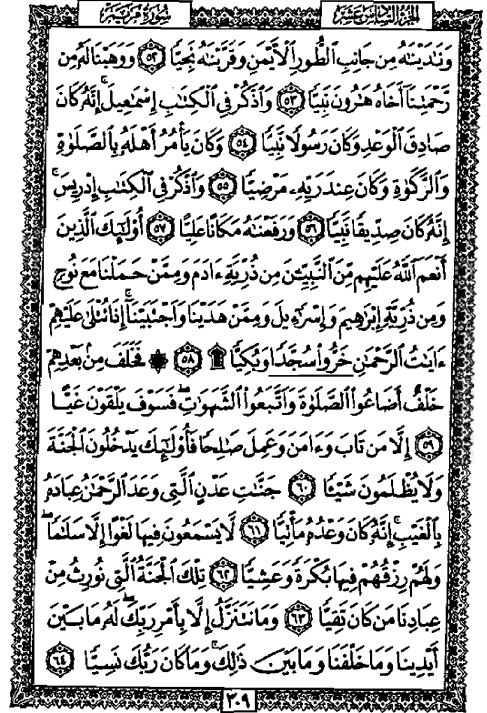 الجزء السادس عشر
سورة مريم
وَنَٰدَيْنَٰهُ مِن جَانِبِ ٱلطُّورِ ٱلْأَيْمَنِ وَقَرَّبْنَٰهُ نَجِيًّا ٥٢ وَوَهَبْنَا لَهُۥ مِن
رَّحْمَتِنَآ أَخَاهُ هَٰرُونَ نَبِيًّا ٥٣ وَٱذْكُرْ فِى ٱلْكِتَٰبِ إِسْمَٰعِيلَ ۚ إِنَّهُۥ كَانَ
صَادِقَ ٱلْوَعْدِ وَكَانَ رَسُولًا نَّبِيًّا ٥٤ وَكَانَ يَأْمُرُ أَهْلَهُۥ بِٱلصَّلَوٰةِ
وَٱلزَّكَوٰةِ وَكَانَ عِندَ رَبِّهِۦ مَرْضِيًّا ٥٥ وَٱذْكُرْ فِى ٱلْكِتَٰبِ إِدْرِيسَ ۚ
إِنَّهُۥ كَانَ صِدِّيقًا نَّبِيًّا ٥٦ وَرَفَعْنَٰهُ مَكَانًا عَلِيًّا ٥٧ أُو۟لَٰٓئِكَ ٱلَّذِينَ
أَنْعَمَ ٱللَّهُ عَلَيْهِم مِّنَ ٱلنَّبِيِّـۧنَ مِن ذُرِّيَّةِ ءَادَمَ وَمِمَّنْ حَمَلْنَا مَعَ نُوحٍ
وَمِن ذُرِّيَّةِ إِبْرَٰهِيمَ وَإِسْرَٰٓءِيلَ وَمِمَّنْ هَدَيْنَا وَٱجْتَبَيْنَآ ۚ إِذَا تُتْلَىٰ عَلَيْهِمْ
ءَايَٰتُ ٱلرَّحْمَٰنِ خَرُّوا۟ سُجَّدًا وَبُكِيًّا ۩ ٥٨ ۞ فَخَلَفَ مِنۢ بَعْدِهِمْ
خَلْفٌ أَضَاعُوا۟ ٱلصَّلَوٰةَ وَٱتَّبَعُوا۟ ٱلشَّهَوَٰتِ ۖ فَسَوْفَ يَلْقَوْنَ غَيًّا
٥٩ إِلَّا مَن تَابَ وَءَامَنَ وَعَمِلَ صَٰلِحًا فَأُو۟لَٰٓئِكَ يَدْخُلُونَ ٱلْجَنَّةَ
وَلَا يُظْلَمُونَ شَيْـًٔا ٦٠ جَنَّٰتِ عَدْنٍ ٱلَّتِى وَعَدَ ٱلرَّحْمَٰنُ عِبَادَهُۥ
بِٱلْغَيْبِ ۚ إِنَّهُۥ كَانَ وَعْدُهُۥ مَأْتِيًّا ٦١ لَّا يَسْمَعُونَ فِيهَا لَغْوًا إِلَّا سَلَٰمًا ۖ
وَلَهُمْ رِزْقُهُمْ فِيهَا بُكْرَةً وَعَشِيًّا ٦٢ تِلْكَ ٱلْجَنَّةُ ٱلَّتِى نُورِثُ مِنْ
عِبَادِنَا مَن كَانَ تَقِيًّا ٦٣ وَمَا نَتَنَزَّلُ إِلَّا بِأَمْرِ رَبِّكَ ۖ لَهُۥ مَا بَيْنَ
أَيْدِينَا وَمَا خَلْفَنَا وَمَا بَيْنَ ذَٰلِكَ ۚ وَمَا كَانَ رَبُّكَ نَسِيًّا ٦٤
٣٠٩